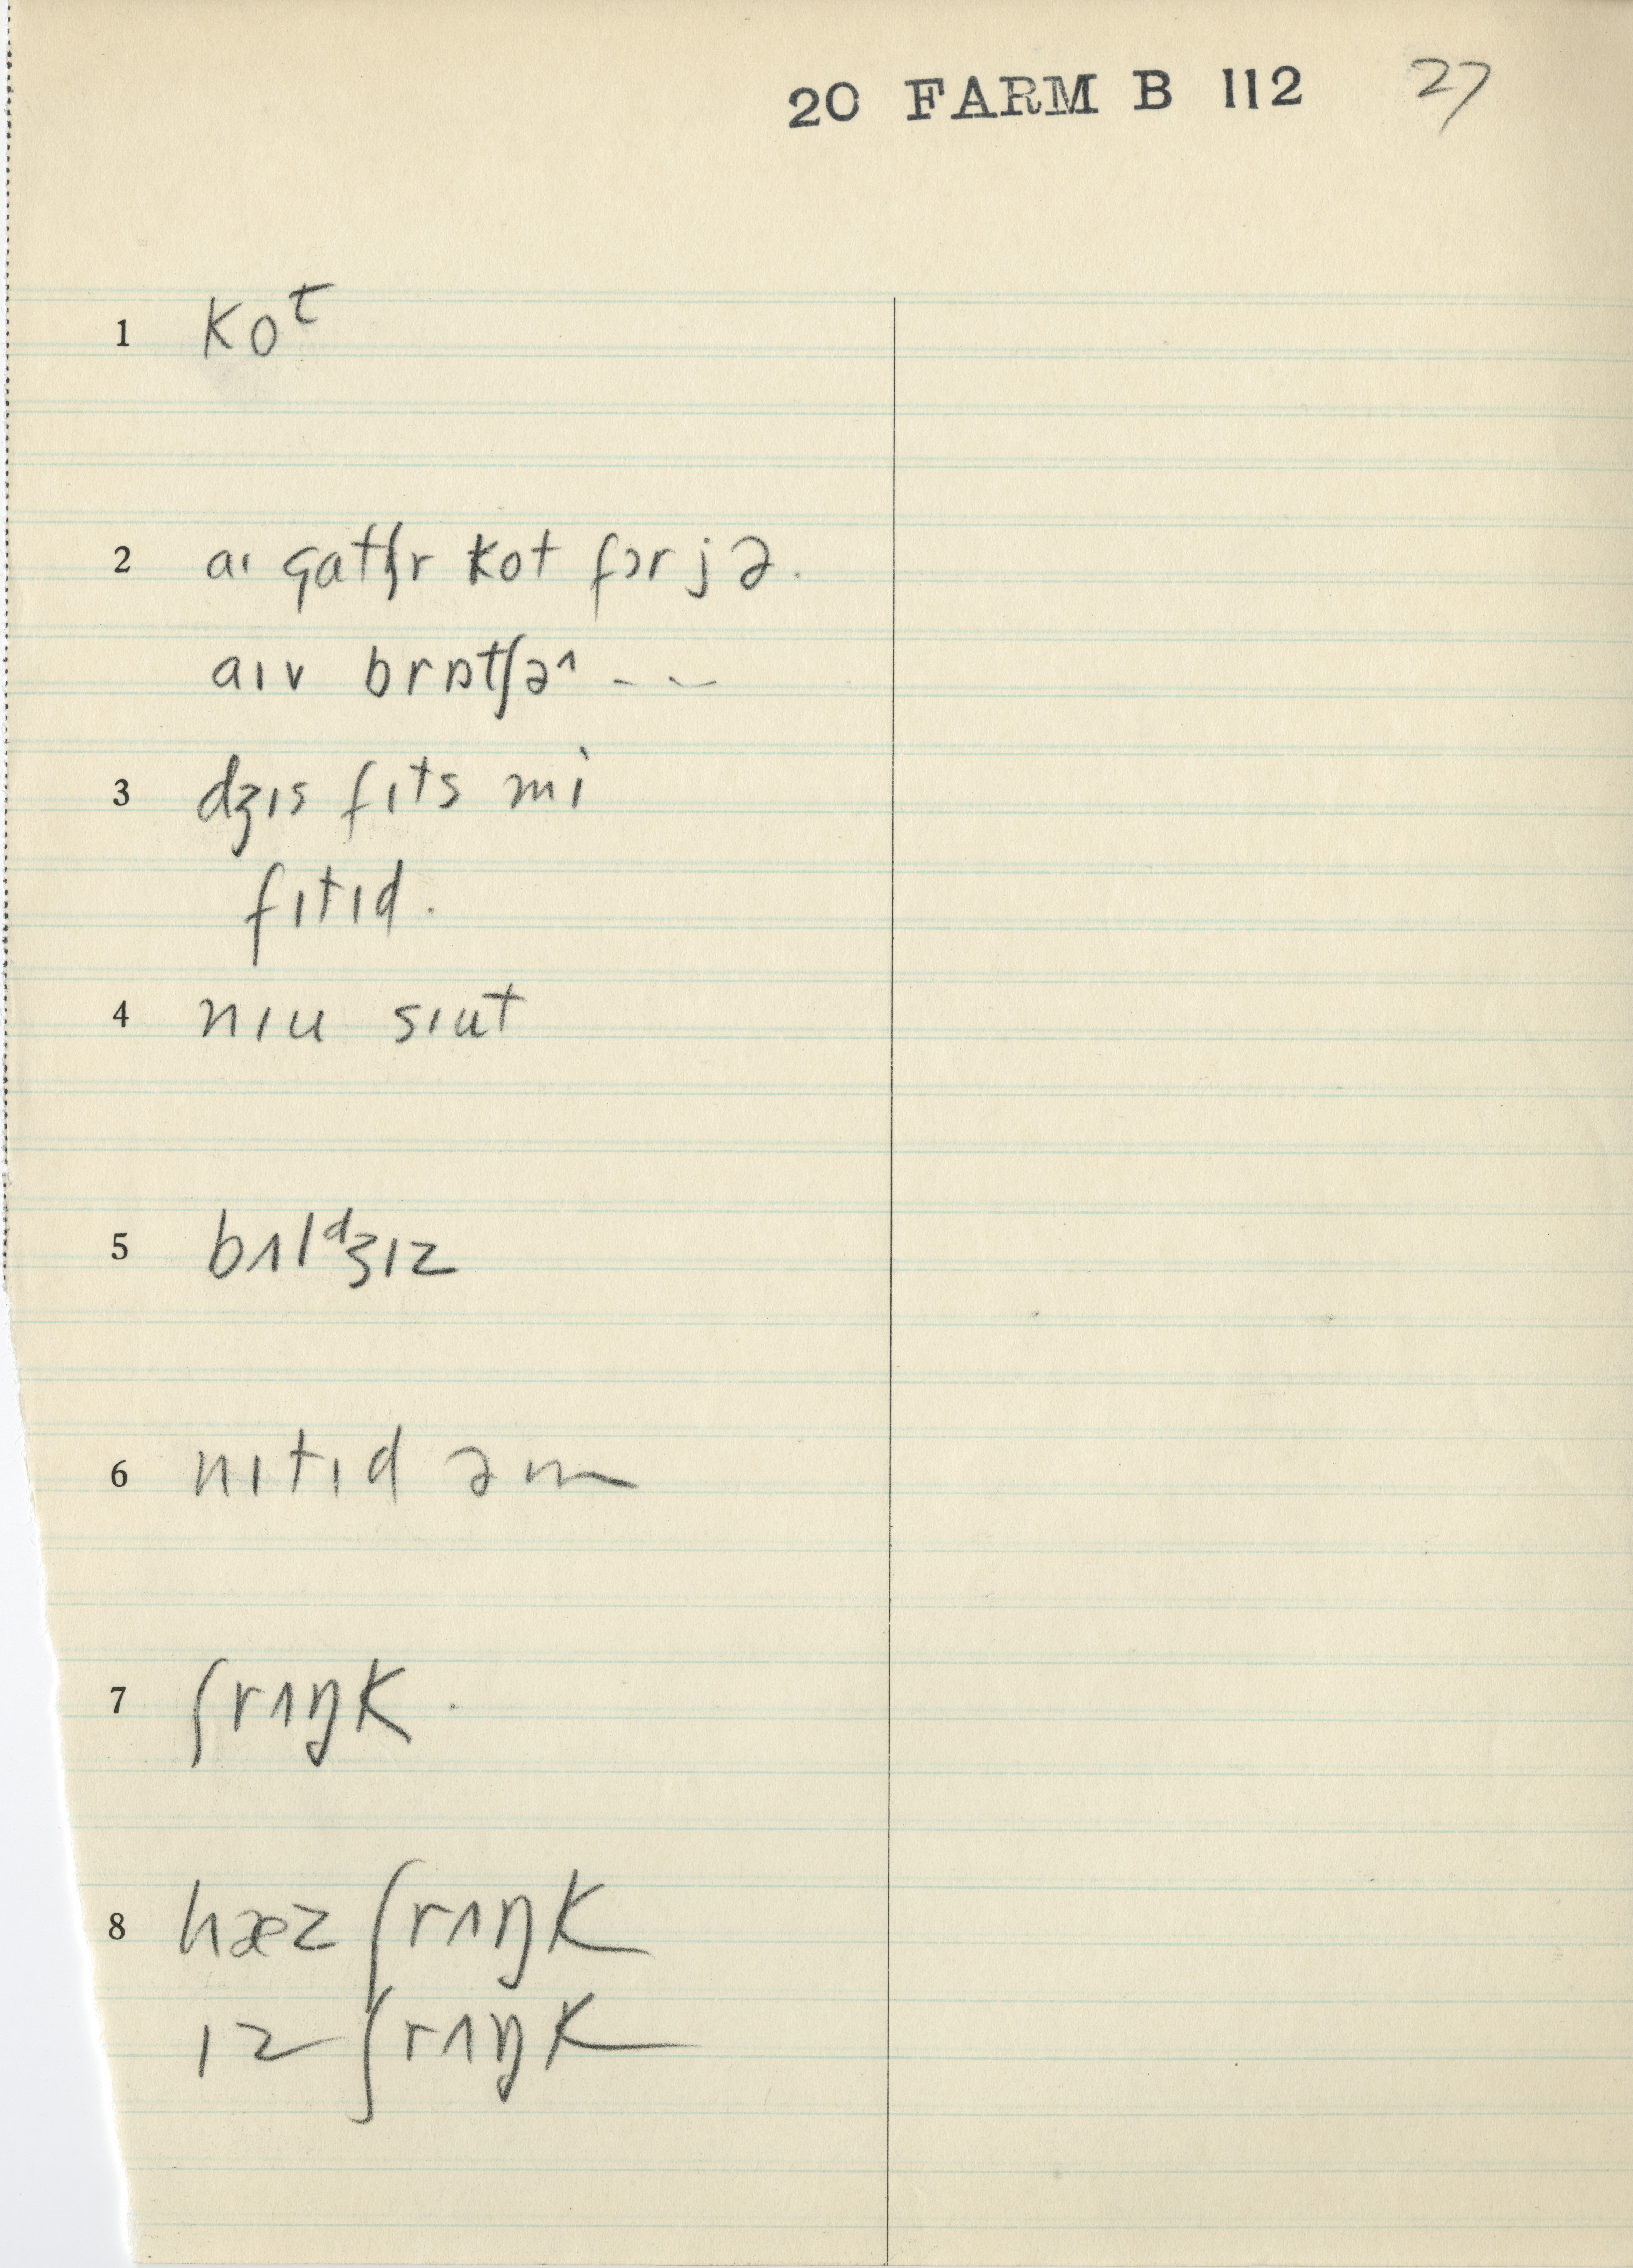 20 FARM B 112 27
1 koᵗ
2 aɪ gatʃr kot fɔr jə.
aɪv brɒtʃə^ – – –
3 dʒɪs fɪts mi
fɪtɪd.
4 nɪu sɪut
5 bʌlᵈʒɪz
6 nɪtɪd əm
7 ʃrʌŋk.
8 hæz ʃrʌŋk
ɪz ʃrʌŋk